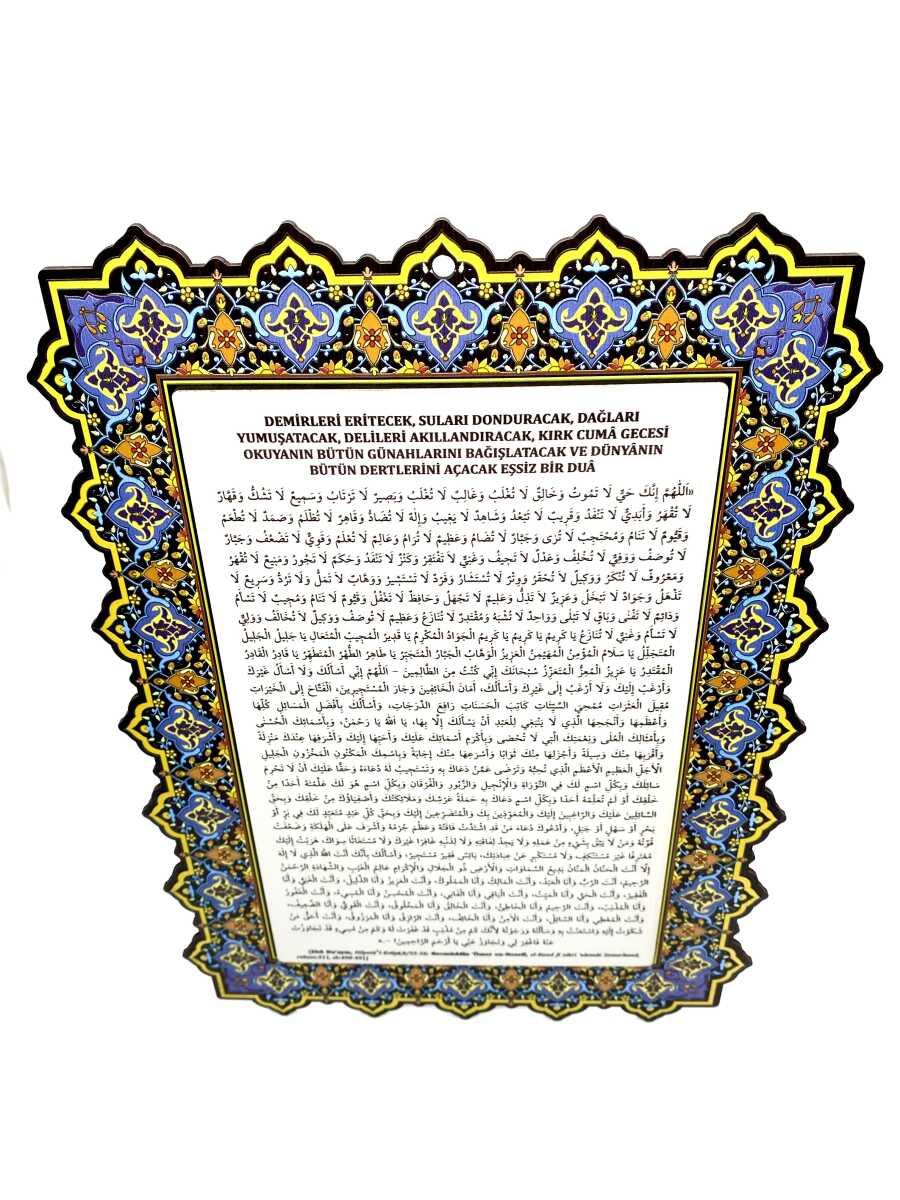 DEMİRLERİ ERİTECEK, SULARI DONDURACAK, DAĞLARI
YUMUŞATACAK, DELİLERİ AKILLANDIRACAK, KIRK CUMÂ GECESİ
OKUYANIN BÜTÜN GÜNAHLARINI BAĞIŞLATACAK VE DÜNYÂNIN
BÜTÜN DERTLERİNİ AÇACAK EŞSİZ BİR DUÂ
«اَللّٰهُمَّ إِنَّكَ حَيٌّ لَا تَمُوتُ وَخَالِقٌ لَا تُغْلَبُ وَغَالِبٌ لَا تُغْلَبُ وَبَصِيرٌ لَا تَرْتَابُ وَسَمِيعٌ لَا تَشُكُّ وَقَهَّارٌ
لَا تُقْهَرُ وَأَبَدِيٌّ لَا تَنْفَدُ وَقَرِيبٌ لَا تَبْعُدُ وَشَاهِدٌ لَا يَغِيبُ وَإِلٰهٌ لَا تُضَادُّ وَقَاهِرٌ لَا تُظْلَمُ وَصَمَدٌ لَا تُطْعَمُ
وَقَيُّومٌ لَا تَنَامُ وَمُحْتَجِبٌ لَا تُرَى وَجَبَّارٌ لَا تُضَامُ وَعَظِيمٌ لَا تُرَامُ وَعَالِمٌ لَا تُعْلَمُ وَقَوِيٌّ لَا تَضْعُفُ وَجَبَّارٌ
لَا تُوصَفُ وَوَفِيٌّ لَا تُخْلِفُ وَعَدْلٌ لَا تَحِيفُ وَغَنِيٌّ لَا تَفْتَقِرُ وَكَنْزٌ لَا تَنْفَدُ وَحَكَمٌ لَا تَجُورُ وَمَنِيعٌ لَا تُقْهَرُ
وَمَعْرُوفٌ لَا تُنْكَرُ وَوَكِيلٌ لَا تُحْقَرُ وَوِتْرٌ لَا تُسْتَشَارُ وَفَرْدٌ لَا تَسْتَشِيرُ وَوَهَّابٌ لَا تَمَلُّ وَلَا تَرُدُّ وَسَرِيعٌ لَا
تَذْهَلُ وَجَوَادٌ لَا تَبْخَلُ وَعَزِيزٌ لَا تَذِلُّ وَعَلِيمٌ لَا تَجْهَلُ وَحَافِظٌ لَا تَغْفُلُ وَقَيُّومٌ لَا تَنَامُ وَمُجِيبٌ لَا تَسْأَمُ
وَدَائِمٌ لَا تَفْنَى وَبَاقٍ لَا تَبْلَى وَوَاحِدٌ لَا تُشْبَهُ وَمُقْتَدِرٌ لَا تُنَازَعُ وَعَظِيمٌ لَا تُوصَفُ وَوَكِيلٌ لَا تُخَالَفُ وَوَلِيٌّ
لَا تَسْأَمُ وَغَنِيٌّ لَا تُنَازَعُ يَا كَرِيمُ يَا كَرِيمُ يَا كَرِيمُ الْجَوَادُ الْمُكَرِّمُ يَا قَدِيرُ الْمُجِيبُ الْمُتَعَالِ يَا جَلِيلُ الْجَلِيلُ
الْمُتَجَلِّلُ يَا سَلَامُ الْمُؤْمِنُ الْمُهَيْمِنُ الْعَزِيزُ الْوَهَّابُ الْجَبَّارُ الْمُتَجَبِّرُ يَا طَاهِرُ الطُّهْرُ الْمُتَطَهِّرُ يَا قَادِرُ الْقَادِرُ
الْمُقْتَدِرُ يَا عَزِيزُ الْمُعِزُّ الْمُتَعَزِّزُ سُبْحَانَكَ إِنِّي كُنْتُ مِنَ الظَّالِمِينَ – اَللّٰهُمَّ إِنِّي أَسْأَلُكَ وَلَا أَسْأَلُ غَيْرَكَ
وَأَرْغَبُ إِلَيْكَ وَلَا أَرْغَبُ إِلَى غَيْرِكَ وَأَسْأَلُكَ، أَمَانَ الْخَائِفِينَ وَجَارَ الْمُسْتَجِيرِينَ، الْفَتَّاحَ إِلَى الْخَيْرَاتِ
مُقِيلَ الْعَثَرَاتِ مُمْحِيَ السَّيِّئَاتِ كَاتِبَ الْحَسَنَاتِ رَافِعَ الدَّرَجَاتِ، وَأَسْأَلُكَ بِأَفْضَلِ الْمَسَائِلِ كُلِّهَا
وَأَعْظَمِهَا وَأَنْجَحِهَا الَّذِي لَا يَنْبَغِي لِلْعَبْدِ أَنْ يَسْأَلَكَ إِلَّا بِهَا، يَا اَللّٰهُ يَا رَحْمٰنُ، وَبِأَسْمَائِكَ الْحُسْنَى
وَبِأَمْثَالِكَ الْعُلَى وَبِنِعْمَتِكَ الَّتِي لَا تُحْصَى وَبِأَكْرَمِ أَسْمَائِكَ عَلَيْكَ وَأَحَبِّهَا إِلَيْكَ وَأَشْرَفِهَا عِنْدَكَ مَنْزِلَةً
وَأَقْرَبِهَا مِنْكَ وَسِيلَةً وَأَجْزَلِهَا مِنْكَ ثَوَابًا وَأَسْرَعِهَا مِنْكَ إِجَابَةً وَبِاسْمِكَ الْمَكْنُونِ الْمَخْزُونِ الْجَلِيلِ
الْأَجَلِّ الْعَظِيمِ الْأَعْظَمِ الَّذِي تُحِبُّهُ وَتَرْضَى عَمَّنْ دَعَاكَ بِهِ وَتَسْتَجِيبُ لَهُ دُعَاءَهُ وَحَقًّا عَلَيْكَ أَنْ لَا تَحْرِمَ
سَائِلَكَ وَبِكُلِّ اسْمٍ لَكَ فِي التَّوْرَاةِ وَالْإِنْجِيلِ وَالزَّبُورِ وَالْفُرْقَانِ وَبِكُلِّ اسْمٍ هُوَ لَكَ عَلَّمْتَهُ أَحَدًا مِنْ
خَلْقِكَ أَوْ لَمْ تُعَلِّمْهُ أَحَدًا وَبِكُلِّ اسْمٍ دَعَاكَ بِهِ حَمَلَةُ عَرْشِكَ وَمَلَائِكَتُكَ وَأَصْفِيَاؤُكَ مِنْ خَلْقِكَ وَبِحَقِّ
السَّائِلِينَ عَلَيْكَ وَالرَّاغِبِينَ إِلَيْكَ وَالْمُعَوِّذِينَ بِكَ وَالْمُتَضَرِّعِينَ إِلَيْكَ وَبِحَقِّ كُلِّ عَبْدٍ مُتَعَبِّدٍ لَكَ فِي بَرٍّ أَوْ
بَحْرٍ أَوْ سَهْلٍ أَوْ جَبَلٍ، وَأَدْعُوكَ دُعَاءَ مَنْ قَدِ اشْتَدَّتْ فَاقَتُهُ وَعَظُمَ جُرْمُهُ وَأَشْرَفَ عَلَى الْهَلَكَةِ وَضَعُفَتْ
قُوَّتُهُ وَمَنْ لَا يَثِقُ بِشَيْءٍ مِنْ عَمَلِهِ وَلَا يَجِدُ لِفَاقَتِهِ وَلَا لِذَنْبِهِ غَافِرًا غَيْرَكَ وَلَا مُسْتَغَاثًا سِوَاكَ، هَرَبْتُ إِلَيْكَ
مُعْتَرِفًا غَيْرَ مُسْتَنْكِفٍ وَلَا مُسْتَكْبِرٍ عَنْ عِبَادَتِكَ، بَائِسٌ فَقِيرٌ مُسْتَجِيرٌ، وَأَسْأَلُكَ بِأَنَّكَ أَنْتَ اللّٰهُ الَّذِي لَا إِلٰهَ
إِلَّا أَنْتَ الْحَنَّانُ الْمَنَّانُ بَدِيعُ السَّمَاوَاتِ وَالْأَرْضِ ذُو الْجَلَالِ وَالْإِكْرَامِ عَالِمُ الْغَيْبِ وَالشَّهَادَةِ الرَّحْمٰنُ
الرَّحِيمُ، أَنْتَ الرَّبُّ وَأَنَا الْعَبْدُ، وَأَنْتَ الْمَالِكُ وَأَنَا الْمَمْلُوكُ، وَأَنْتَ الْعَزِيزُ وَأَنَا الذَّلِيلُ، وَأَنْتَ الْغَنِيُّ وَأَنَا
الْفَقِيرُ، وَأَنْتَ الْحَيُّ وَأَنَا الْمَيِّتُ، وَأَنْتَ الْبَاقِي وَأَنَا الْفَانِي، وَأَنْتَ الْمُحْسِنُ وَأَنَا الْمُسِيءُ، وَأَنْتَ الْغَفُورُ
وَأَنَا الْمُذْنِبُ، وَأَنْتَ الرَّحِيمُ وَأَنَا الْخَاطِئُ، وَأَنْتَ الْخَالِقُ وَأَنَا الْمَخْلُوقُ، وَأَنْتَ الْقَوِيُّ وَأَنَا الضَّعِيفُ،
وَأَنْتَ الْمُعْطِي وَأَنَا السَّائِلُ، وَأَنْتَ الْأَمِنُ وَأَنَا الْخَائِفُ، وَأَنْتَ الرَّازِقُ وَأَنَا الْمَرْزُوقُ، وَأَنْتَ أَحَقُّ مَنْ
شَكَوْتُ إِلَيْهِ وَاسْتَغَثْتُ بِهِ وَسَأَلْتُهُ وَرَجَوْتُهُ لِأَنَّكَ كَمْ مِنْ مُذْنِبٍ قَدْ غَفَرْتَ لَهُ وَكَمْ مِنْ مُسِيءٍ قَدْ تَجَاوَزْتَ
عَنْهُ فَاغْفِرْ لِي وَتَجَاوَزْ عَنِّي يَا أَرْحَمَ الرَّاحِمِينَ!